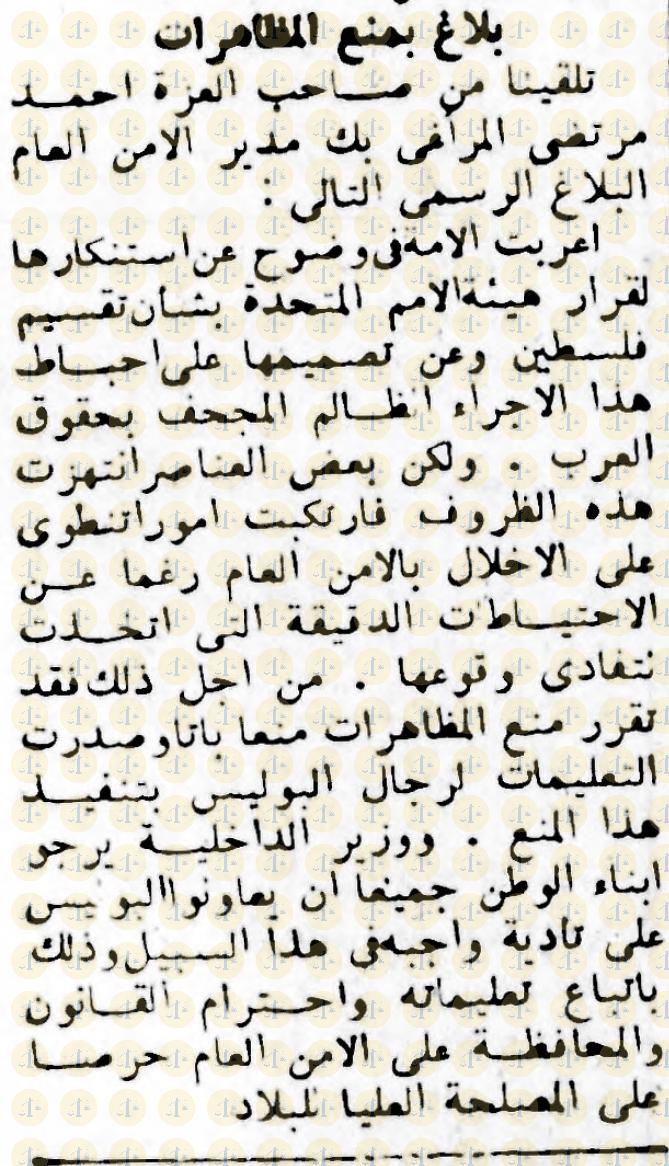 بلاغ بمنع المظاهرات
تلقينا من صاحب العزة احمد
مرتضى المراغى بك مدير الامن العام
البلاغ الرسمى التالى :
اعربت الامة فى وضوح عن استنكارها
لقرار هيئة الامم المتحدة بشأن تقسيم
فلسطين وعن تصميمها على احباط
هذا الاجراء الظالم المجحف بحقوق
العرب . ولكن بعض العناصر انتهزت
هذه الظروف فارتكبت امورا تنطوى
على الاخلال بالامن العام رغما عن
الاحتياطات الدقيقة التى اتخذت
لتفادى وقوعها . من اجل ذلك فقد
تقرر منع المظاهرات منعا باتا وصدرت
التعليمات لرجال البوليس بتنفيذ
هذا المنع . ووزير الداخلية يرجو
ابناء الوطن جميعا ان يعاونوا البوليس
على تادية واجبه فى هذا السبيل وذلك
باتباع تعليماته واحترام القانون
والمحافظة على الامن العام حرصا
على المصلحة العليا للبلاد